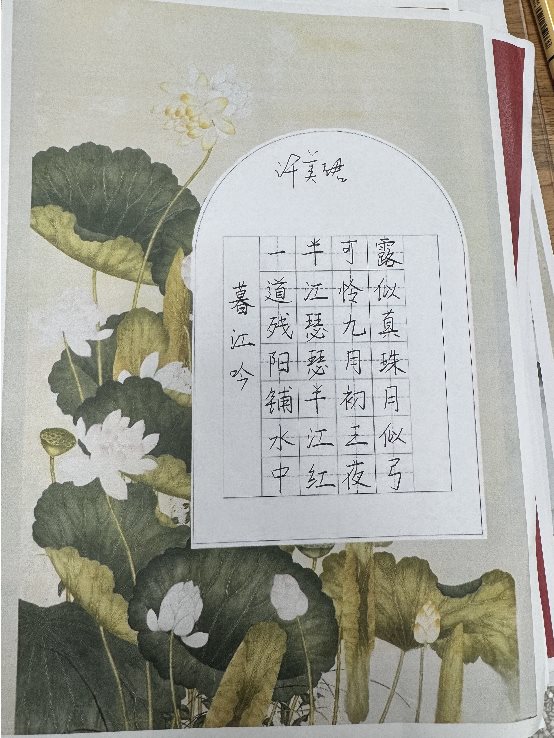 许美珺
暮江吟
一道残阳铺水中
半江瑟瑟半江红
可怜九月初三夜
露似真珠月似弓